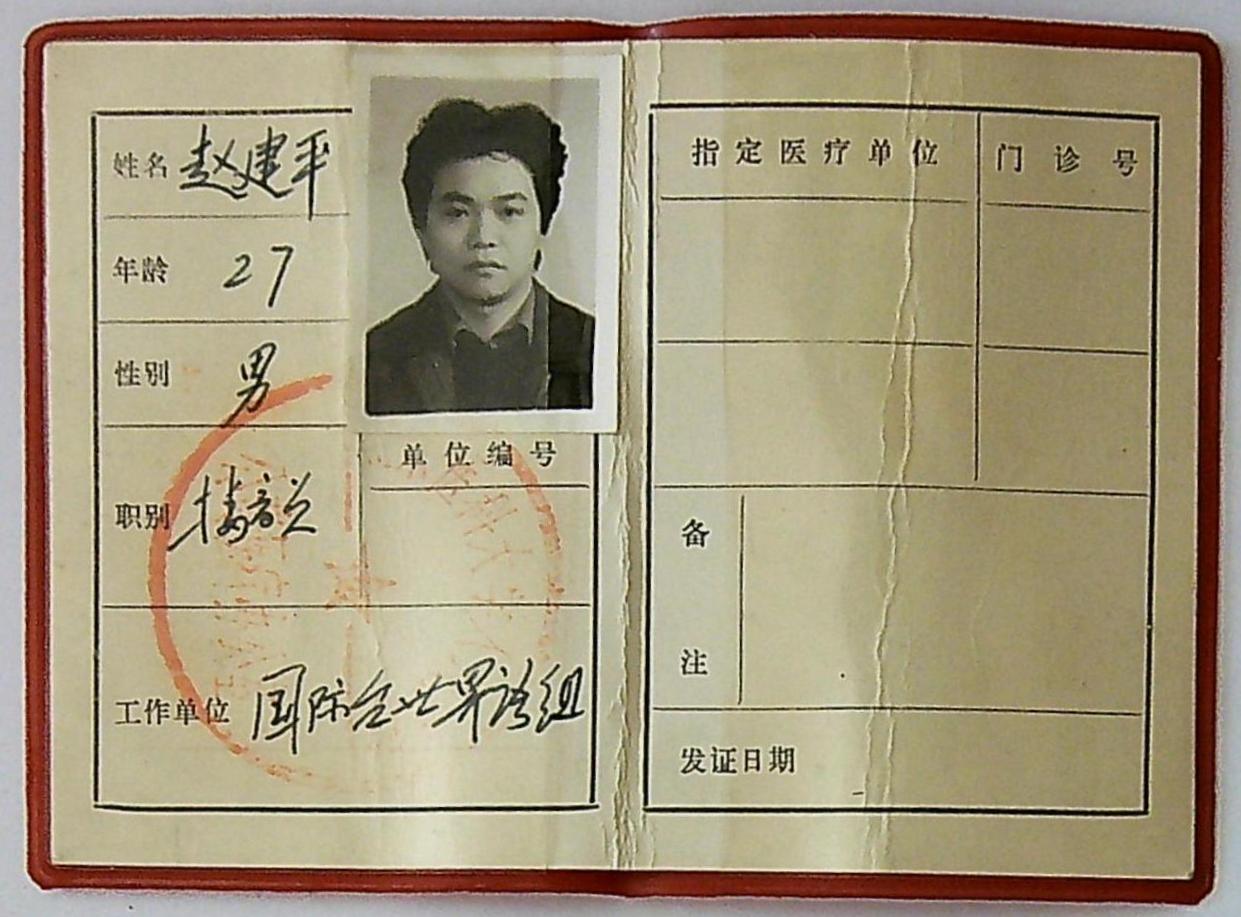 姓名 赵建平
年龄 27
性别 男
职别 播音员
单位编号
工作单位 国际台世界语组
指定医疗单位 门诊号
备注
发证日期